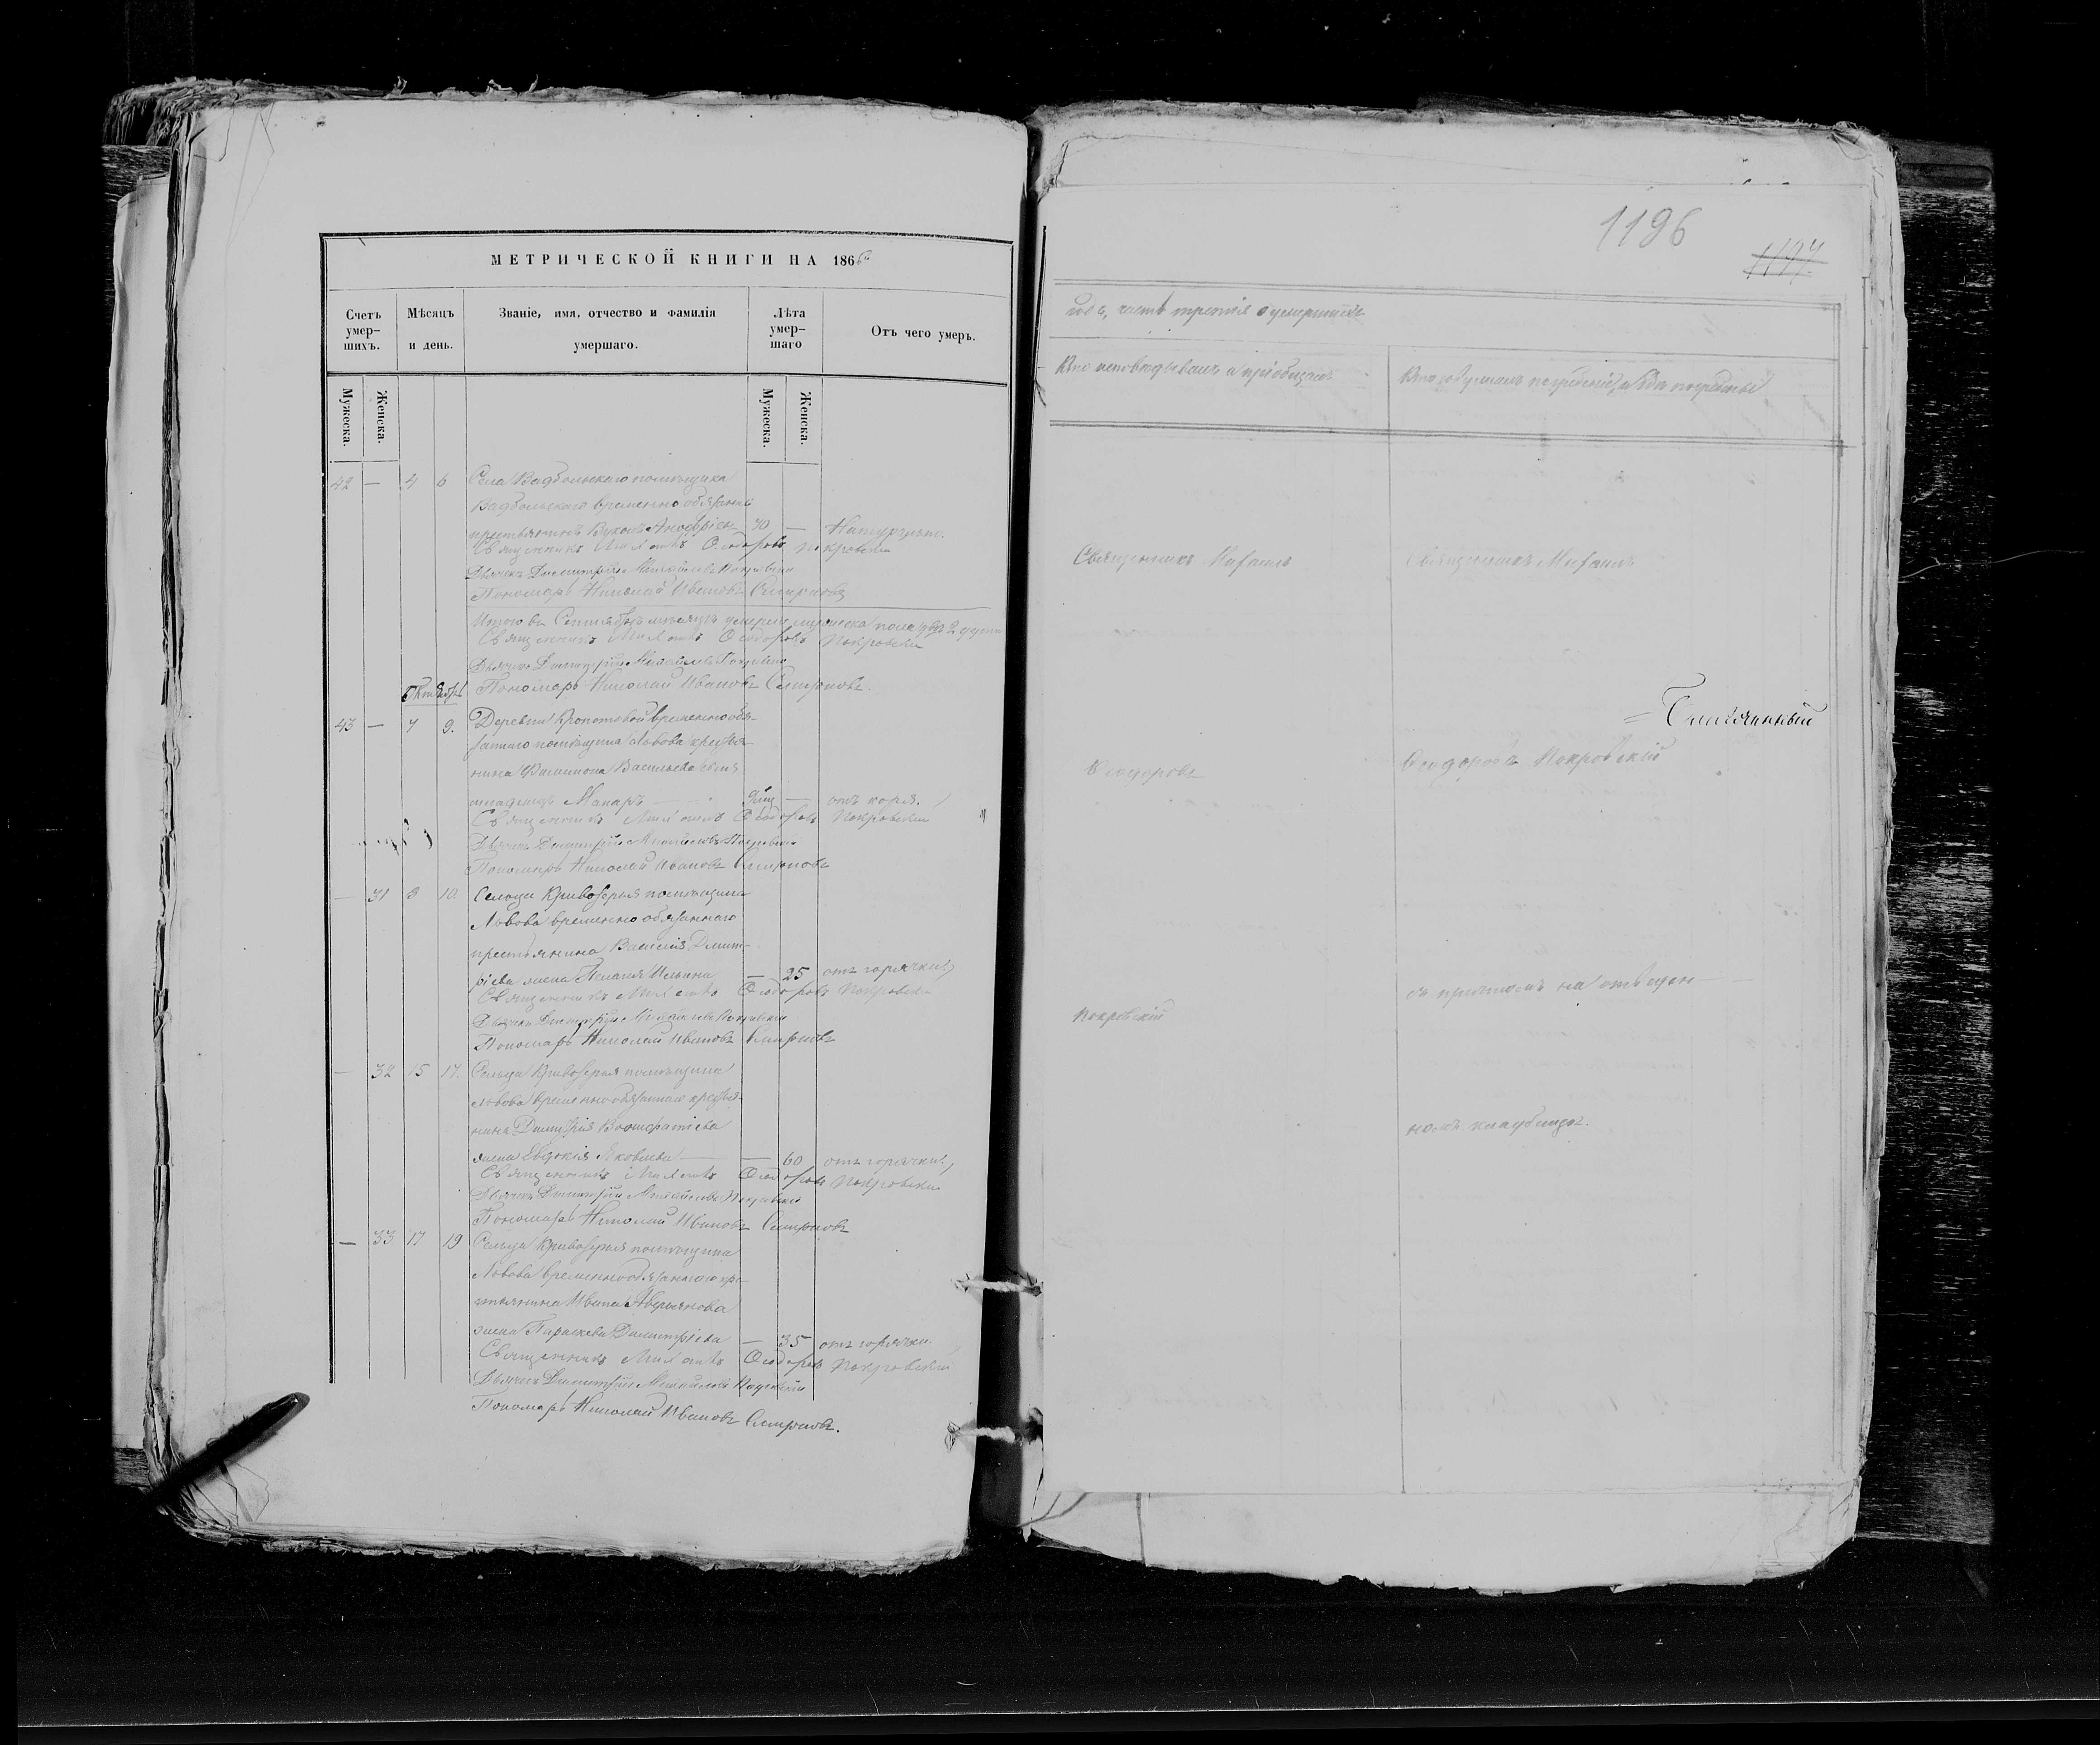 МЕТРИЧЕСКОЙ КНИГИ НА 1866й
Счетъ умер-шихъ.
Мѣсяцъ и день.
Званіе, имя, отчество и фамилія умершаго.
Лѣта умер-шаго
Отъ чего умеръ.
Мужеска.
Женска.
Мужеска.
Женска.
42 — 4 6 Села Вадбольскаго помѣщика
Вадбольскаго временно обязан
крестьянинъ Вуколъ 70 — Натурально.
Священникъ Михаилъ Ѳеодоровъ Покровскій
Дьячекъ Димитрій Михайловъ Покровскій
Пономарь Николай Ивановъ Смирновъ
Итого въ Сентябрѣ мѣсяцѣ умерло мужеска пола 2 душ
Священникъ Михаилъ Ѳеодоровъ Покровскій
Дьячекъ Димитрій Михайловъ Покровскій
Пономарь Николай Ивановъ Смирновъ.
Октябрь
43 — 7 9. Деревни Кропотовой временнообя-
заннаго помѣщика Львова крестья-
нина Филимона Васильева сынъ
младенецъ Макаръ — — отъ кори.
Священникъ Михаилъ Ѳеодоровъ Покровскій
Дьячекъ Димитрій Михайловъ Покровскій
Пономарь Николай Ивановъ Смирновъ
— 31 8 10. Сельца Кривозерья помѣщика
Львова временно обязаннаго
крестьянина Василія Димит-
ріева жена Пелагея Ильина — 25 отъ горячки.
Священникъ Михаилъ Ѳеодоровъ Покровскій
Дьячекъ Димитрій Михайловъ Покровскій
Пономарь Николай Ивановъ Смирновъ
— 32 15 17. Сельца Кривозерья помѣщика
Львова временнообязаннаго крестья-
нина Димитрія
жена Евдокія Яковлева — 60 отъ горячки.
Священникъ Михаилъ Ѳеодоровъ Покровскій
Дьячекъ Димитрій Михайловъ Покровскій
Пономарь Николай Ивановъ Смирновъ
— 33 17 19 Сельца Кривозерья помѣщика
Львова временнообязаннаго кре-
стьянина Ивана Аверьянова
жена Параскева Димитріева — 35 отъ горячки.
Священникъ Михаилъ Ѳеодоровъ Покровскій
Дьячекъ Димитрій Михайловъ Покровскій
Пономарь Николай Ивановъ Смирновъ.
1196
1197
года, часть третія о умершихъ
Кто исповѣдывалъ и пріобщалъ
Кто совершалъ погребеніе, и гдѣ погребены
Священникъ Михаилъ
Священникъ Михаилъ
Ѳеодоровъ
Ѳеодоровъ Покровскій
Покровскій
съ причтомъ на отведен-
номъ кладбищѣ.